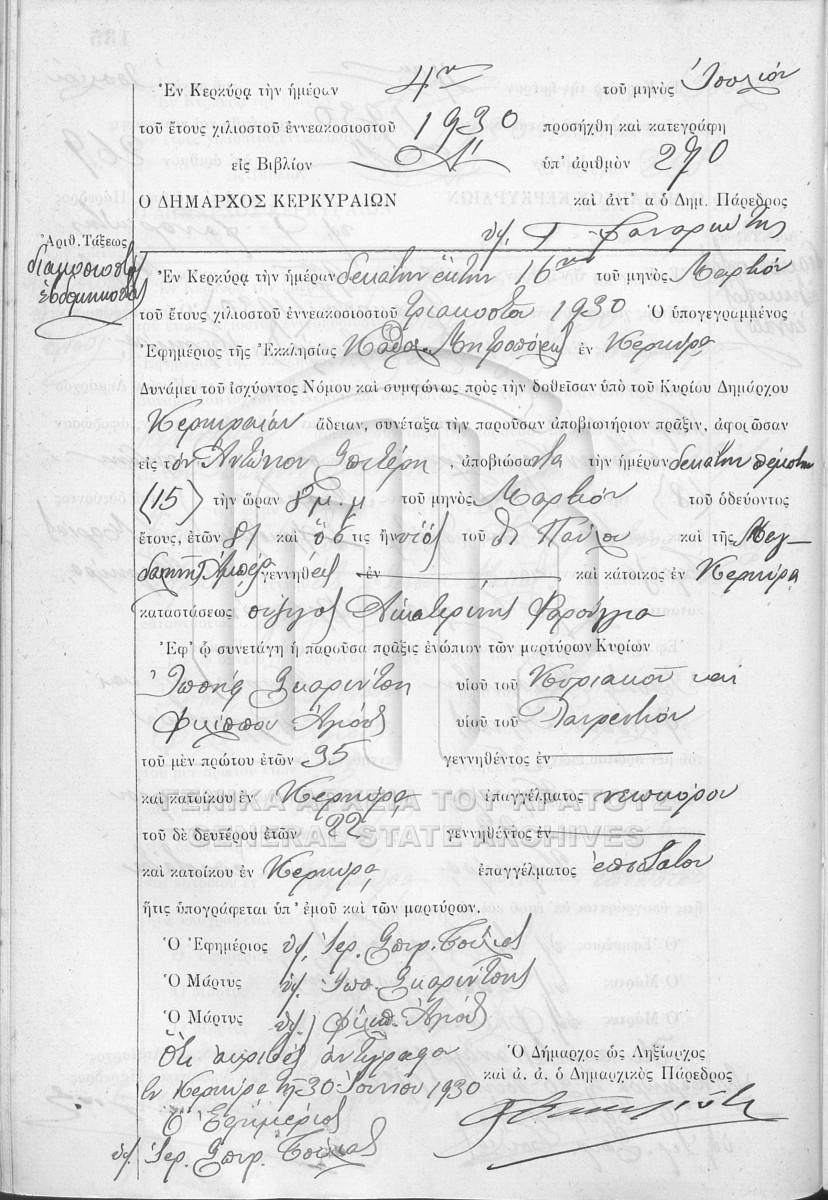 Ἐν Κερκύρᾳ τὴν ἡμέραν 4ην τοῦ μηνὸς Ἰουλίου
τοῦ ἔτους χιλιοστοῦ ἐννεακοσιοστοῦ 1930 προσήχθη καὶ κατεγράφη
εἰς Βιβλίον Α' ὑπ' ἀριθμὸν 270
Ο ΔΗΜΑΡΧΟΣ ΚΕΡΚΥΡΑΙΩΝ καὶ ἀντ' α ὁ Δημ. Πάρεδρος
ὑφ. Γ. Φαναριώτης
Ἀριθ. Τάξεως
διακοσιοστὸς
ἑβδομηκοστὸς
Ἐν Κερκύρᾳ τὴν ἡμέραν δεκάτην ἕκτην 16ην τοῦ μηνὸς Μαρτίου
τοῦ ἔτους χιλιοστοῦ ἐννεακοσιοστοῦ τριακοστοῦ 1930 Ὁ ὑπογεγραμμένος
Ἐφημέριος τῆς Ἐκκλησίας Καθολ. Μητροπόλεως ἐν Κερκύρᾳ
Δυνάμει τοῦ ἰσχύοντος Νόμου καὶ συμφώνως πρὸς τὴν δοθεῖσαν ὑπὸ τοῦ Κυρίου Δημάρχου
Κερκυραίων ἄδειαν, συνέταξα τὴν παροῦσαν ἀποβιωτήριον πρᾶξιν, ἀφορῶσαν
εἰς τὸν Ἀντώνιον Σπιτέρη, ἀποβιώσαντα τὴν ἡμέραν δεκάτην πέμπτην
(15) τὴν ὥραν 8 μ.μ τοῦ μηνὸς Μαρτίου τοῦ ὁδεύοντος
ἔτους, ἐτῶν 81 καὶ ὅστις ἦν υἱὸς τοῦ Παύλου καὶ τῆς Μαγ-
γεννηθεὶς ἐν καὶ κάτοικος ἐν Κερκύρᾳ
καταστάσεως σύζυγος Αἰκατερίνης Φαρούγια
Ἐφ' ᾧ συνετάγη ἡ παροῦσα πρᾶξις ἐνώπιον τῶν μαρτύρων Κυρίων
Ἰωσὴφ Σκαρινζη υἱοῦ τοῦ Κυριακοῦ καὶ
Φιλίππου υἱοῦ τοῦ Λαυρεντίου
τοῦ μὲν πρώτου ἐτῶν 35 γεννηθέντος ἐν
καὶ κατοίκου ἐν Κερκύρᾳ ἐπαγγέλματος νεωκόρου
τοῦ δὲ δευτέρου ἐτῶν 22 γεννηθέντος ἐν
καὶ κατοίκου ἐν Κερκύρᾳ ἐπαγγέλματος ἐπιστάτου
ἥτις ὑπογράφεται ὑπ' ἐμοῦ καὶ τῶν μαρτύρων.
Ὁ Ἐφημέριος ὑφ. Ἱερ. Σπυρ.
Ὁ Μάρτυς ὑφ. Ἰωσ.
Ὁ Μάρτυς ὑφ. Φιλιπ.
Ὅτι ἀκριβὲς ἀντίγραφον Ὁ Δήμαρχος ὡς Ληξίαρχος
ἐν Κερκύρᾳ τῇ 30 Ἰουνίου 1930 καὶ ἀ. ἀ. ὁ Δημαρχικὸς Πάρεδρος
Ὁ Ἐφημέριος
ὑφ. Ἱερ. Σπυρ.
ΓΕΝΙΚΑ ΑΡΧΕΙΑ ΤΟΥ ΚΡΑΤΟΥΣ
GENERAL STATE ARCHIVES